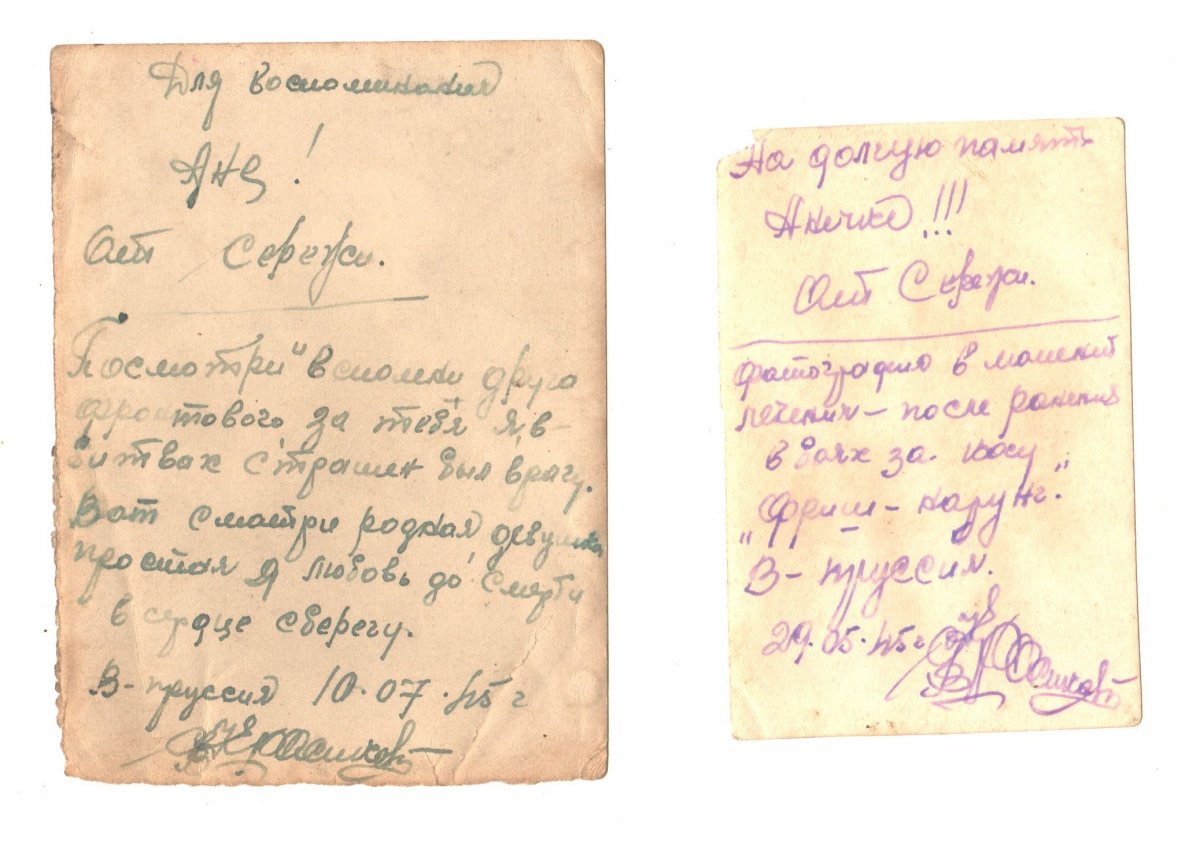 Для воспоминания
Ане!
От Сережи.
Посмотри и вспомни друга
фронтового за тебя я в-
битвах страшен был врагу.
Вот смотри родная девушка
простая я любовь до смерти
в сердце сберегу.
В-Пруссия 10.07.45 г
На долгую память
Анечке!!!
От Сережи.
фотографию в момент
лечения - после ранения
в боях за косу
"Фриш-нарунг."
В-Пруссия.
29.05.45 г